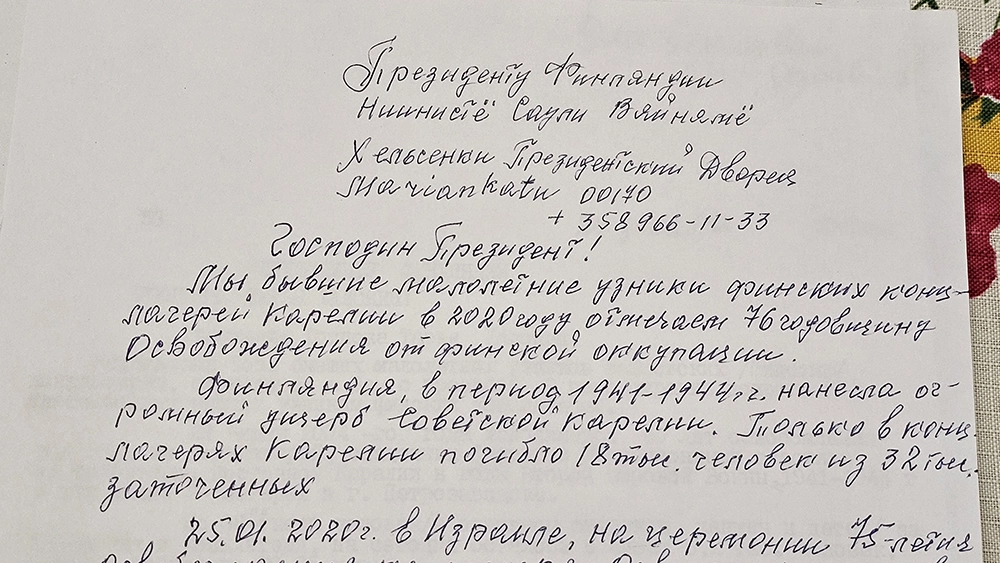 Президенту Финляндии
Ниинистё Саули Вяйнямё
Хельсенки Президентский Дворец
Mariankatu 00170
+ 358966-11-33
Господин Президент!
Мы бывшие малолетние узники финских конц-
лагерей Карелии в 2020 году отмечаем 76 годовщину
Освобождения от финской оккупации.
Финляндия, в период 1941-1944г.г. нанесла ог-
ромный ущерб Советской Карелии. Только в конц.
лагерях Карелии погибло 18 тыс. человек из 32 тыс.
заточенных
25.01.2020г. в Израиле, на церемонии 75-летия